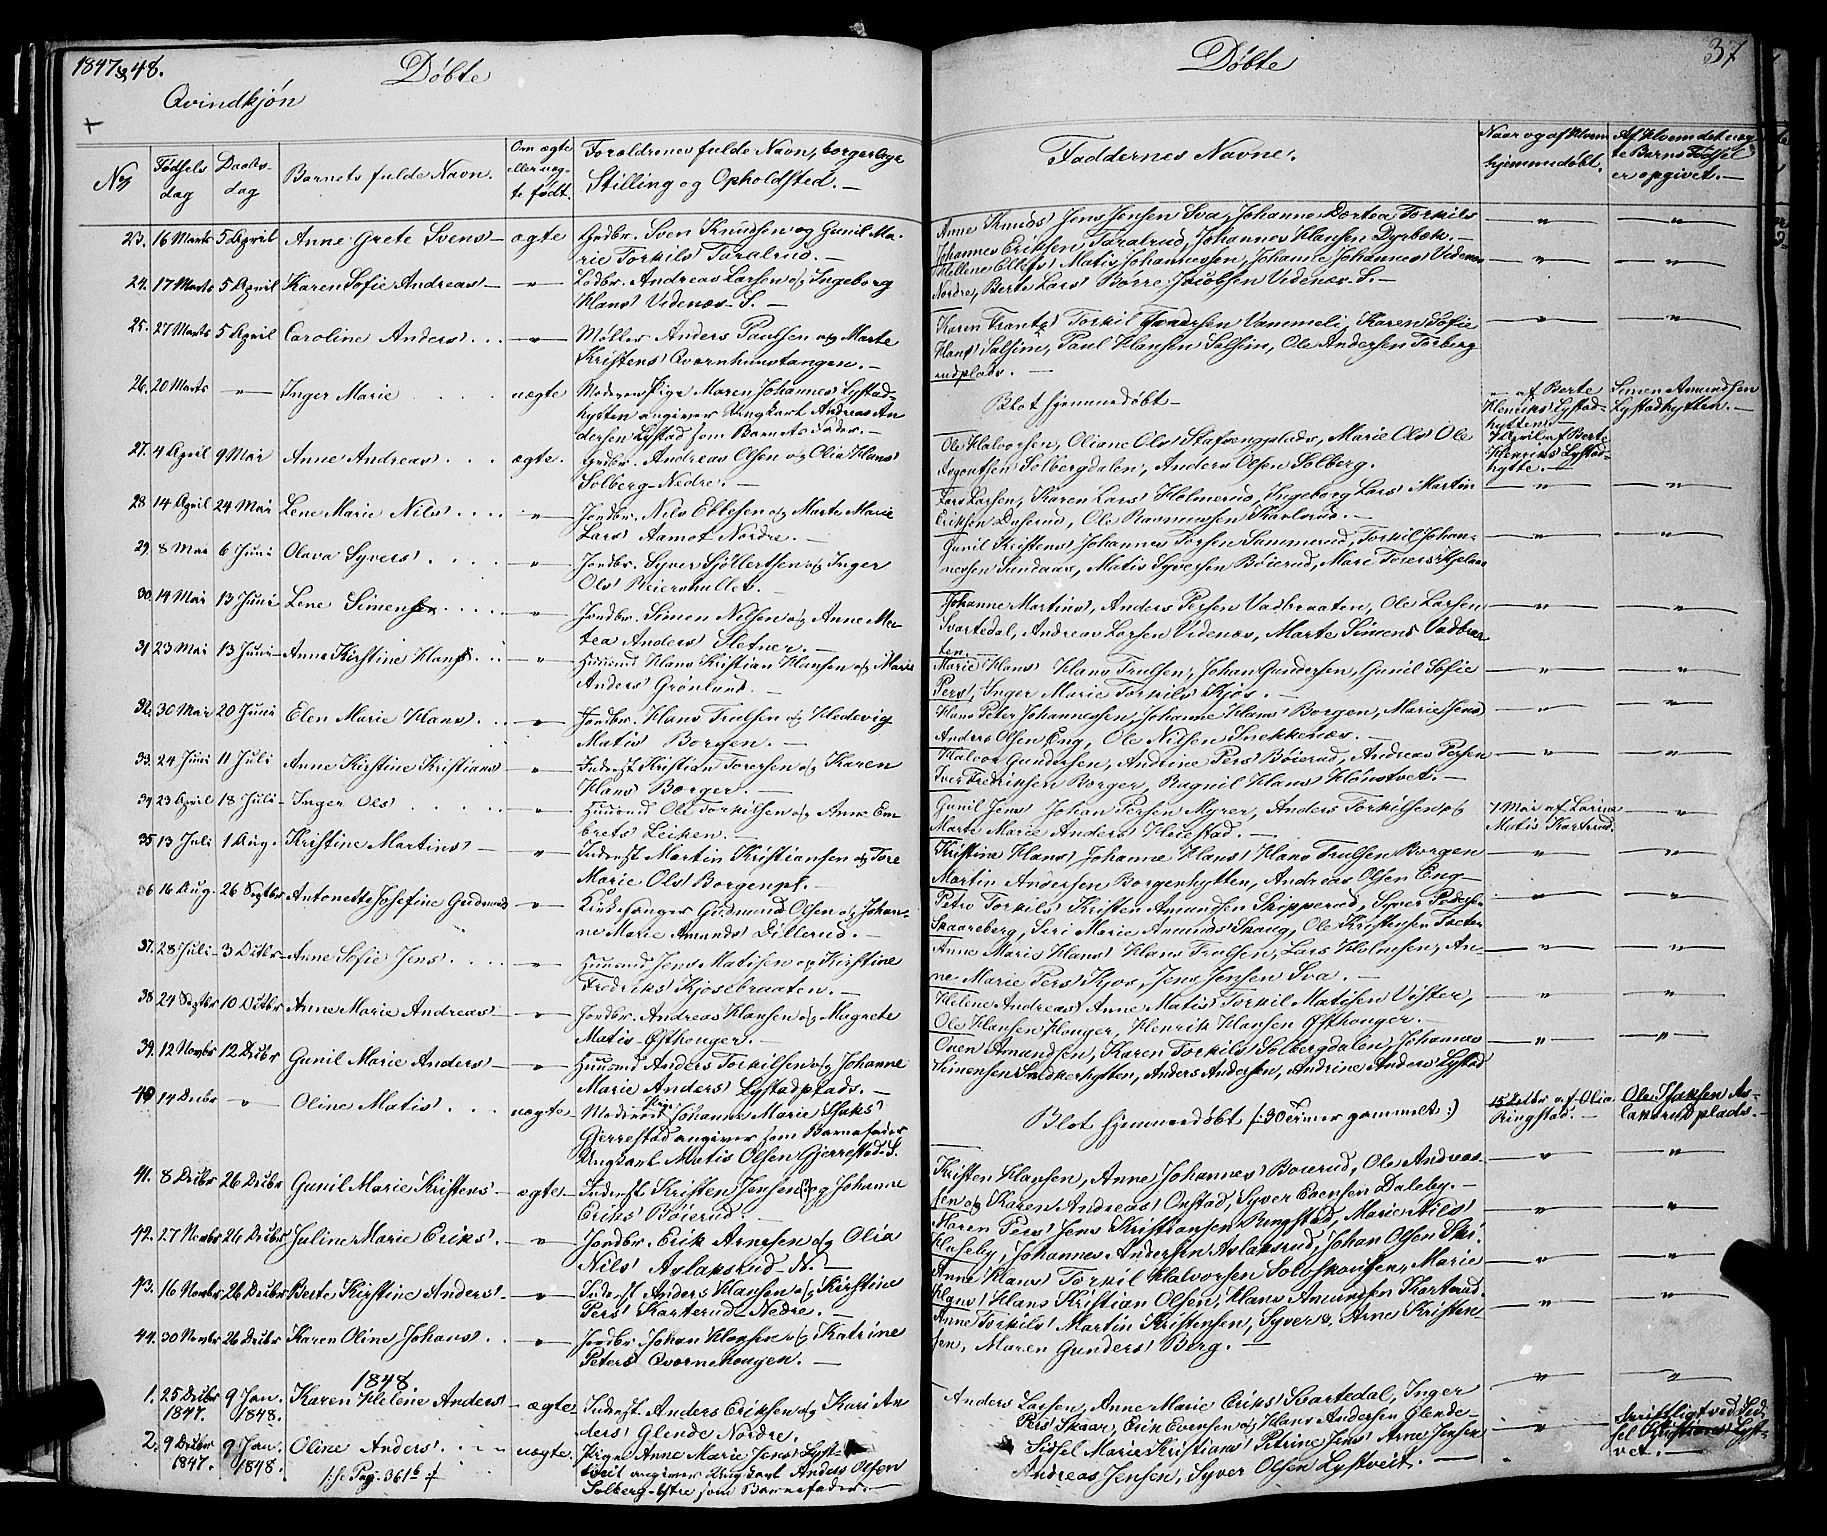 1847 & 48.
Døbte
Qvindkjøn
Døbte
37
No
Fødsels dag
Daabs-dag
Barnets fulde Navn.
Om ægte eller uægte født.
Forældrenes fulde Navn, borgerlige Stilling og Opholdsted. —
Faddernes Navne.
Naar og af Hvem hjemmedøbt.
Af Hvem det uægte Barns Fødsel er opgivet. —
23. 16 Marts 5 April Anne Grete Svens — ægte Grdbr. Sven Knudsen og Gunil Ma-
rie Torkils Taralrud. —
Anne Knuds Jens Jensen Sva, Johanne Dortea Torkils
Johannes Eriksen Taralrud, Johannes Hansen Dyrbæk. —
24. 17 Marts 5 April Karen Sofie Andreas — " — Lodbr. Andreas Larsen og Ingeborg
Hans Videnæs - S. —
Hellene Ellefs Matis Johannessen, Johanne Johannes Videnæs
Nordre, Berte Lars Børre Jacobsen Videnæs - S. —
25. 27 Marts 5 April Caroline Anders . . — " — Møller Anders Paulsen og Marte
Kristens Qvernhustangen. —
Karen Frantz Torkil Gundersen Vammeli, Karen Sofie
Hans Solsim, Paul Hansen Solsim, Ole Andersen Torberg
rudplads. —
26. 20 Marts — " — Inger Marie . . . uægte Moderen Pige Maren Johannes Lystad-
hytten angiver Ungkarl Andreas An
dersen Lystad som Barnets Fader. —
Blot hjemmedøbt —
" af Berte
Henriks Lystad-
hytten —
Simen Amundsen
Lystadhytten. —
27. 4 April 9 Mai Anne Andreas . . . ægte. Grdbr. Andreas Olsen og Olia Hans
Solberg - Nedre. —
Ole Halvorsen, Oliane Ols Stafsengplads, Marie Ols Ole
Solbergdalen, Anders Olsen Solberg.
7 April af Berte
Henriks Lystad-
hytte. —
28 14 April 24 Mai Lene Marie Nils . . . " Jordbr. Nils Ebbesen og Marte Marie
Lars Aamot Nordre. —
Lars Larsen, Karen Lars Holmerud, Ingeborg Lars Martin
Eriksen Daserud, Ole Rasmussen Karlsrud. —
29. 8 Mai 6 Juni Olava Syvers . . . " Jordbr. Syver Sjøllertsen og Inger
Ols Reiershullet. —
Gunil Kristens Johannes Torsen Sammerud, Torkil Johan-
nessen Sundaas, Matis Syversen Bøierud, Mari Torers Hjelaas
30. 14 Mai 13 Juni Lene Simens . . . " Jordbr. Simen Nilsen og Anne Mar-
tea Anders Sletner. —
Johanne Martins, Anders Persen Vadbraaten, Ole Larsen
Svartedal, Andreas Larsen Videnæs, Marte Simens Vadbraa-
ten. —
31 23 Mai 13 Juni Anne Kirstine Hans . . " Huusmd Hans Kristian Hansen og Marie
Anders Grønlund. —
Marie Hans Hans Trulsen, Johan Gundersen, Gunil Sofie
Pers, Inger Marie Torkils Kjøs. —
32. 30 Mai 20 Juni Elen Marie Hans . . " Jordbr. Hans Trulsen og Hedevig
Matis Borgen. —
Hans Peter Johannessen, Johanne Hans Borgen, Marie Jens
Anders Olsen Eng, Ole Nilsen Snekkenæs. —
33. 24 Juni 11 Juli Anne Kirstine Kristians " Inderst Kristian Torersen og Karen
Hans Borger. —
Halvor Gundersen, Andrine Pers Bøierud, Andreas Persen
Iver Fredriksen Borger, Ragnil Hans Hønstvet. —
34 23 April 18 Juli Inger Ols . . . " Huusmd Ole Torkilsen og Anne Em
brets Leiken. —
Gunil Jens Johan Persen Myrer, Anders Torkilsen og
Marte Marie Anders Heiestad. —
7 Mai af Larine
Matis Karterud.
35 13 Juli 1 Aug. Kristine Martins — " Inderst Martin Kristiansen og Tore
Marie Ols Borgenpl. —
Kristine Hans Johanne Hans Hans Trulsen Borgen
Martin Andersen Borgenhytten, Andreas Olsen Eng —
36 16 Aug. 26 Septbr Antonette Josefine Gudmunds " Kirkesanger Gudmund Olsen og Johan-
ne Marie Amunds Dillerud. —
Petro Torkils Kristen Amundsen Skipperud, Syver Peders
Skaareberg, Siri Marie Amunds Skaug, Ole Kristensen Tveter
37. 28 Juli 3 Octbr Anne Sofie Jens . . " Huusmd Jens Matisen og Kirstine
Fredriks Kjosebraaten. —
Anne Marie Hans Hans Trulsen, Lars Holmsen, An-
ne Marie Pers Kjos, Jens Jensen Sva. —
38 24 Septbr 10 Octbr Anne Marie Andreas — " Jordbr. Andreas Hansen og Magrete
Matis Østhonger. —
Helene Andreas Anne Matis Torkil Matisen Vister,
Ole Hansen Honger, Henrik Hansen Østhonger. —
39. 12 Novbr 12 Decbr Gunil Marie Anders — " — Huusmd Anders Torkilsen og Johanne
Marie Anders Lystadplads. —
Onen Amundsen, Karen Torkils Solbergdalen, Johannes
Simensen Snedkerhytten, Anders Andersen, Andrine Anders Lystad
40 14 Decbr " Oline Matis . . . uægte Moderen Pige Johanne Marie Isaks
Gjerrestad angiver som Barnefader
Ungkarl Matis Olsen Gjerrestad S.
Blot hjemmedøbt (: 3 Timer gammelt :)
15 Decbr af Olia
Ringstad. —
Ole Isaksen As-
laksrudplads. —
41. 8 Decbr 26 Decbr Gunil Marie Kristens — ægte — Inderst Kristen Jensen og Johanne
Eriks Bøierud. —
Kristen Hansen, Anne Johannes Bøierud, Ole Andreas-
sen og Karen Andreas Onstad, Syver Evensen Daleby. —
42. 27 Novbr 26 Decbr Juline Marie Eriks. — " Jordbr. Erik Arnesen og Olia
Nils Aslaksrud - N. —
Maren Pers Jens Kristiansen Ringstad, Marie Nils
Huseby, Johannes Andersen Aslaksrud, Johan Olsen Ski.
43. 16 Novbr 26 Decbr Berte Kirstine Anders. — " — Inderst Anders Hansen og Kirstine
Pers Karterud Nedre. —
Anne Hans Torkil Halvorsen Soloskousen, Marie
Hans Hans Kristian Olsen, Hans Amundsen Karterud.
44. 30 Novbr 26 Decbr Karen Oline Johans . . " Jordbr. Johan Hansen og Katrine
Peters Qvernehougen. —
Anne Torkils Martin Kristensen, Syvers, Arne Kristen-
sen, Maren Gunders Berg. —
1848
1. 25 Decbr 1847. 9 Jan. 1848. Karen Helene Anders — ægte — Inderst Anders Eriksen og Kari An
ders Glende Nordre.
Anders Larsen, Anne Marie Eriks Svartedal, Inger
Pers Skaar, Erik Evensen og Hans Andersen Glende —
2. 9 Decbr 1847. 9 Jan. 1848. Oline Anders . . — uægte. Pigen Anne Marie Jens Lyst-
tveit angiver Ungkarl Anders Olsen
Solberg - østre som Barnefader. —
/: se Pag. 361 b :/
Sidsel Marie Kristians Petrine Jens Arne Jensen
Andreas Jensen, Syver Olsen Lystveit. —
Skriftligt ved Sid-
sel Kristians Lyst-
vet. —